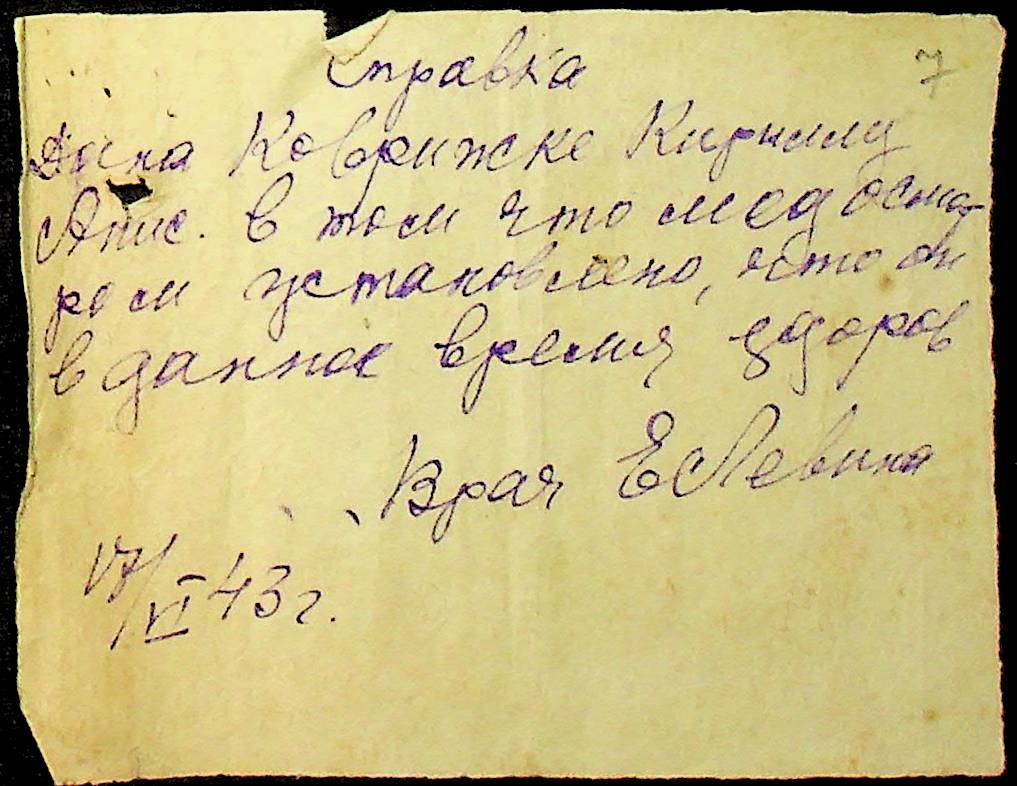 Справка
7
Дана Коврижке Кириллу
Анис. в том что медосмот
ром установлено, что он
в данное время здоров
Врач ЕЛевина
17/VI 43г.